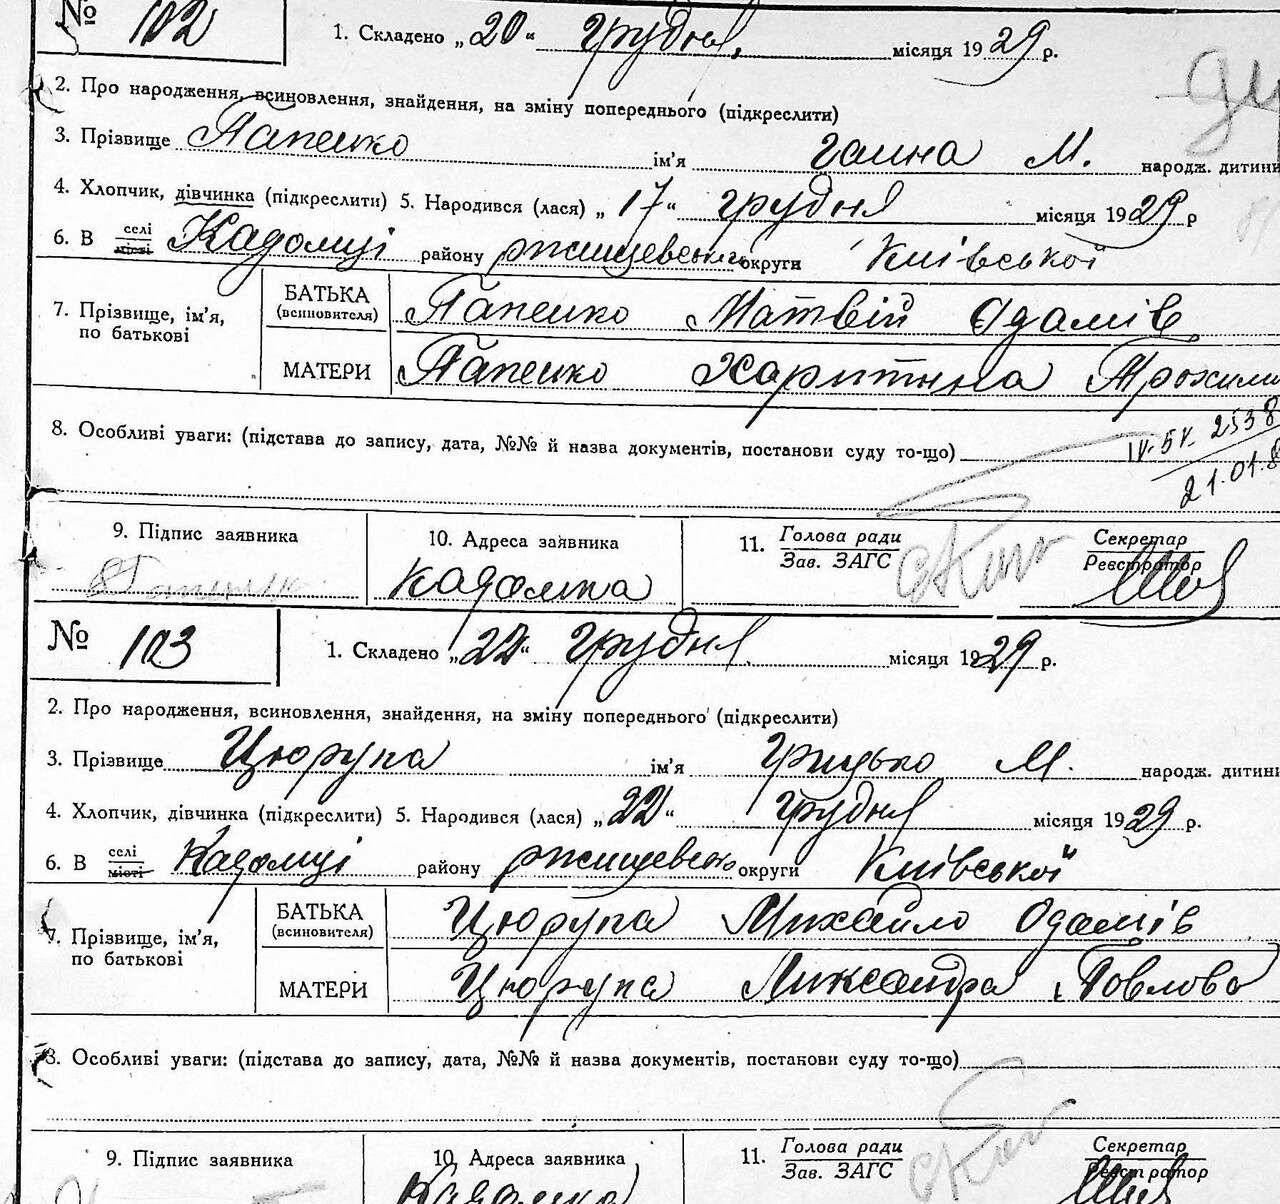 № 102 1. Складено „20“ грудня місяця 1929 р.
2. Про народження, всиновлення, знайдення, на зміну попереднього (підкреслити)
3. Прізвище Папенко ім'я Ганна М. народж. дитини
4. Хлопчик, дівчинка (підкреслити) 5. Народився (лася) „17“ грудня місяця 1929 р
6. В селі місті Кадомці району ржищевського округи Київської
7. Прізвище, ім'я, по батькові БАТЬКА (всиновителя) Папенко Матвій Одамів
МАТЕРИ Папенко Харитина
8. Особливі уваги: (підстава до запису, дата, №№ й назва документів, постанови суду то-що) IV-БК 2538
21.01.8
9. Підпис заявника 10. Адреса заявника 11. Голова ради Зав. ЗАГС Секретар Реєстратор
Кадомка
№ 103 1. Складено „22“ грудня місяця 1929 р.
2. Про народження, всиновлення, знайдення, на зміну попереднього (підкреслити)
3. Прізвище Цюрупа ім'я Грицько М. народж. дитини
4. Хлопчик, дівчинка (підкреслити) 5. Народився (лася) „22“ грудня місяця 1929 р.
6. В селі місті Кадомці району ржищевського округи Київської
7. Прізвище, ім'я, по батькові БАТЬКА (всиновителя) Цюрупа Михайло Одамів
МАТЕРИ Цюрупа Ликсандра Павлова
8. Особливі уваги: (підстава до запису, дата, №№ й назва документів, постанови суду то-що)
9. Підпис заявника 10. Адреса заявника 11. Голова ради Зав. ЗАГС Секретар Реєстратор
Кадомка